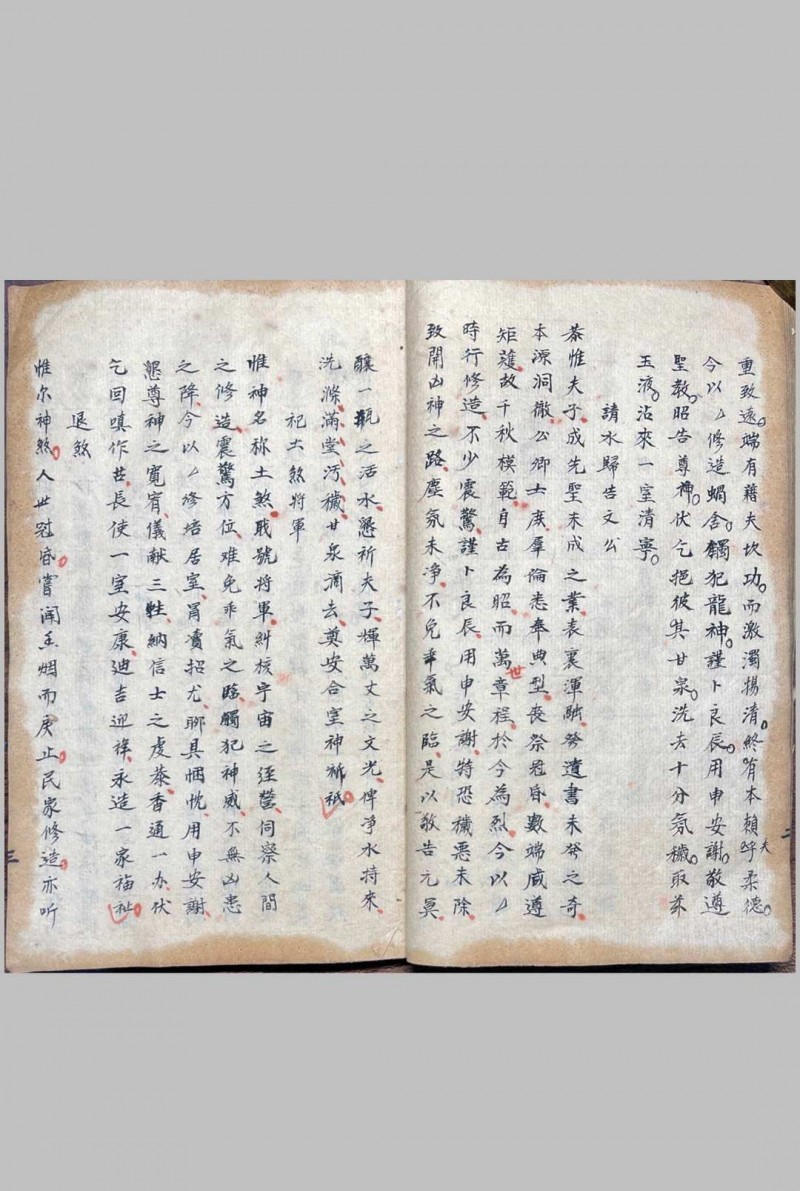 重致遠。端有藉夫坎功。而激濁揚清。終有本賴乎夫柔德。
今以厶修造蝸舍。觸犯龍神。謹卜良辰。用申安謝。敬遵
聖教。昭告尊神。伏乞挹彼其甘泉。洗去十分氛穢。取茲
玉液。沾來一室清寧。
請水歸告文公
恭惟夫子、成先聖未成之業、表裏渾融、發遺書未發之奇
本源洞徹、公卿士庶、羣倫悉奉典型、喪祭冠昏、數端咸遵
矩矱、故千秋模範、自古為昭、而萬世章程、於今為烈、今以厶
時行修造、不少震驚、謹卜良辰、用申安謝、特恐穢惡未除、
致開凶神之路、塵氛未净、不免乖氣之臨、是以敬告元冥
釀一瓶之活水、懇祈夫子、輝萬丈之文光、俾爭水持來、
洗滌滿堂汚穢、甘泉滴去、奠安合室神祇。
祀土煞將軍
惟神名称土煞、職號將軍、糾核宇宙之經營、伺察人間
之修造、震驚方位、难免乖氣之臨、觸犯神威、不無凶患
之降、今以厶修培居室、冐瀆招尤、聊具悃忱、用申安謝、
懇尊神之寬宥、儀献三牲、納信士之虔恭、香通一办、伏
乞回嗔作喜、長使一室安康、迪吉迎祥、永造一家福祉。
退煞
惟尔神煞。人世冠昏。嘗聞香烟而戾止。民家修造。亦听
二
三